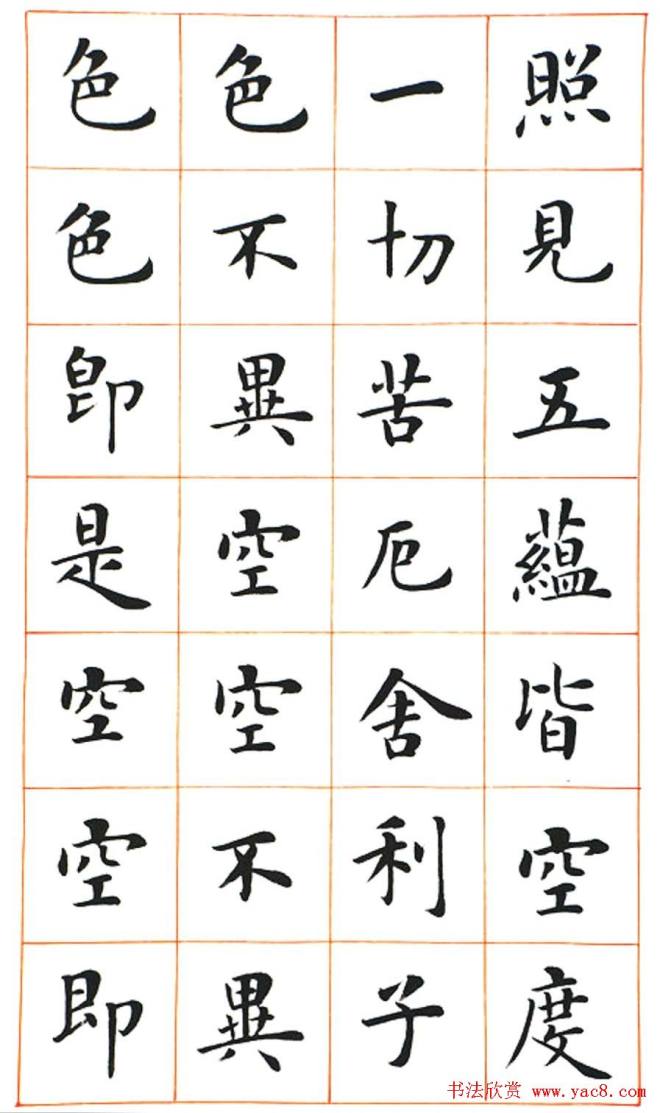 照見五蘊皆空度
一切苦厄舍利子
色不異空空不異
色色即是空空即
书法欣赏 www.yac8.com